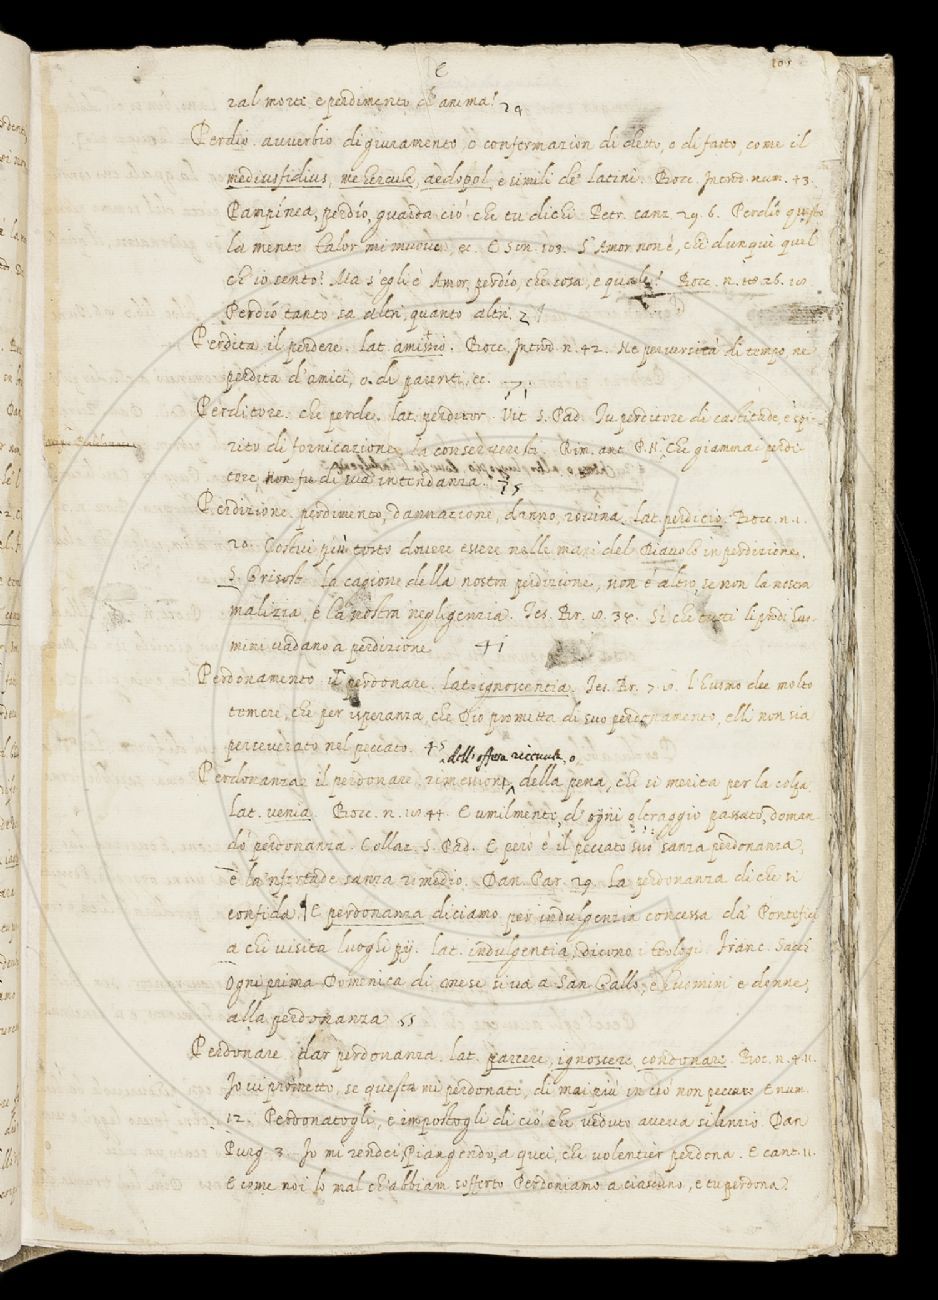 e
105
ral morte e perdimento d'anima! 29
Perdio. avverbio di giuramento, o confermazion di detto, o di fatto, come il
mediusfidius, mehercule, aedopol, e simili de' latini. Bocc. Introd. num. 43.
Pampinea, perdio, guarda ciò che tu dichi. Petr. canz. 29. 6. Perdio questo
la mente talor mi muova, ec. E Son. 103. S'Amor non è, che dunque quel
ch'io sento? Ma s'egli è Amor, perdio, che cosa, e quale? Bocc. n. 26. 10.
Perdio tanto sa altri, quanto altri. 21
Perdita. il perdere. lat. amissio. Bocc. Introd. n. 42. Ne perversità di tempo, ne
perdita d'amici, o di parenti, ec. 7.
Perditore. che perde. lat. perditor. Vit. S. Pad. Tu perditore di castitade, e spi-
rito di fornicazione, la conserveresti. Rim. ant. P. N. Che giammai perdi-
tore, non fu di sua intendanza. 15
Perdizione. perdimento, dannazione, danno, rovina. lat. perdicio. Bocc. n. 1.
20. Costui più tosto dovere essere nelle mani del Diavolo in perdizione.
S. Grisost. la cagione della nostra perdizione, non è altro, se non la nostra
malizia, e la nostra negligenzia. Tes. Br. Sì che tutti li prodi huo-
mini vadano a perdizione. 41
Perdonamento. il perdonare. lat. ignoscentia. Tes. Br. 7. L'huomo dee molto
temere, che per isperanza, che Dio prometta di suo perdonamento, elli non sia
perseverato nel peccato. 45
dell'offesa ricevuta, o
Perdonanza. il perdonare. rimession della pena, che si merita per la colpa.
Lat. venia. Bocc. n. 44. E umilmente, d'ogni oltraggio passato, doman-
dò perdonanza. Collaz. S. Pad. E però è il peccato suo sanza perdonanza,
e la 'nfertade sanza rimedio. Dan. Par. 29. La perdonanza di che si
confida. E perdonanza diciamo per indulgenzia concessa da' Pontefici
a chi visita luoghi pij. lat. indulgentia, dicono i teologi. Franc. Sacch.
Ogni prima Domenica di mese si va a San Gallo, e huomini e donne,
alla perdonanza. 55
Perdonare. dar perdonanza. lat. parcere, ignoscere, condonare. Boc. n. 4. 11.
Io vi prometto, se questa mi perdonate, di mai più in ciò non peccare. E num.
12. Perdonatogli, e impostogli di ciò, che veduto aveva silenzio. Dan.
Purg. 3. Io mi rendei, Piangendo, a quei, che volentier perdona. E cant. 11.
E come noi lo mal ch'abbiam sofferto Perdoniamo a ciascuno, e tu perdona.